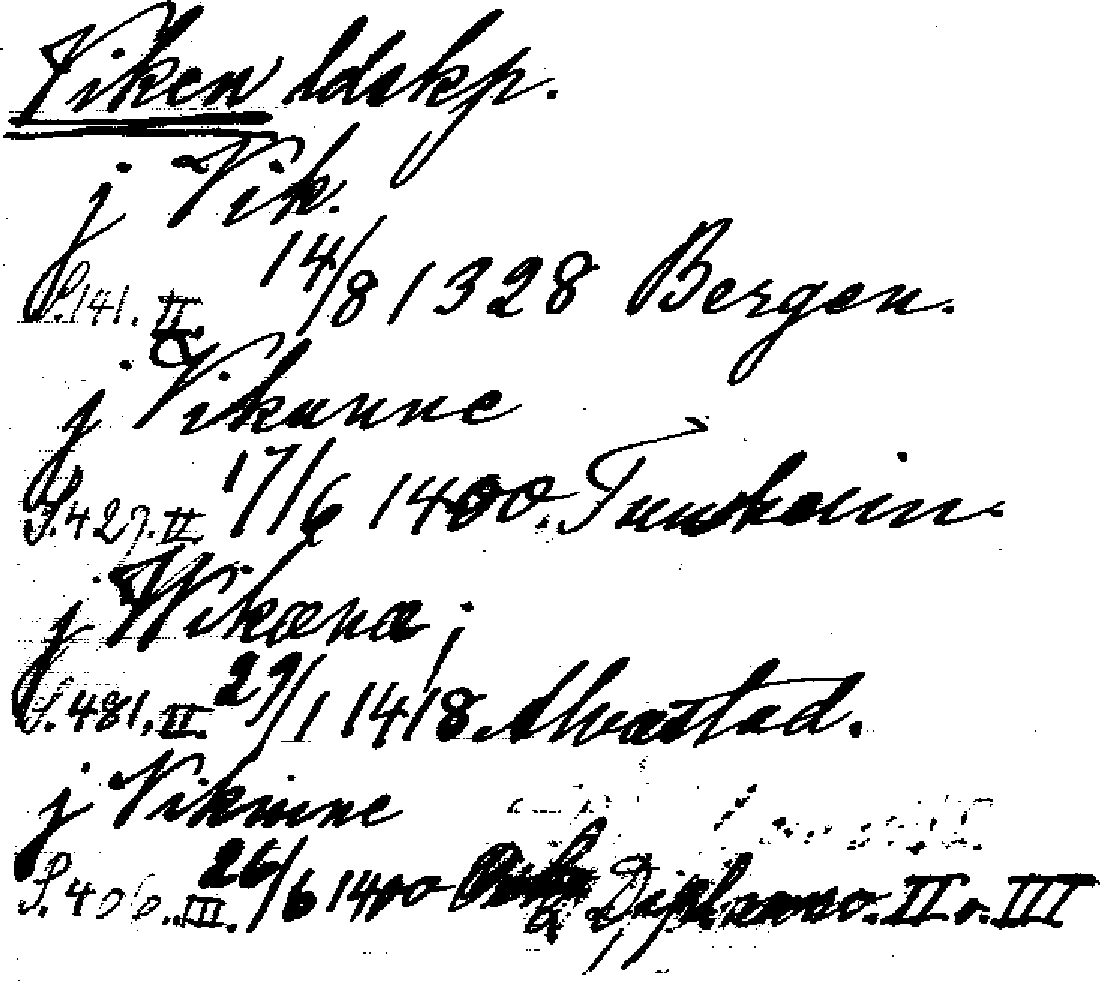 Viken ldskp.
j Vik.
S. 141. II 14/8 1328 Bergen.
j Vikunne
S. 427. II 17/6 1400.
j Wikæna;
S. 481. II. 29/1 1418. Alvastad.
j Vikinne
S. 406. III. 26/6 1400 II o. III